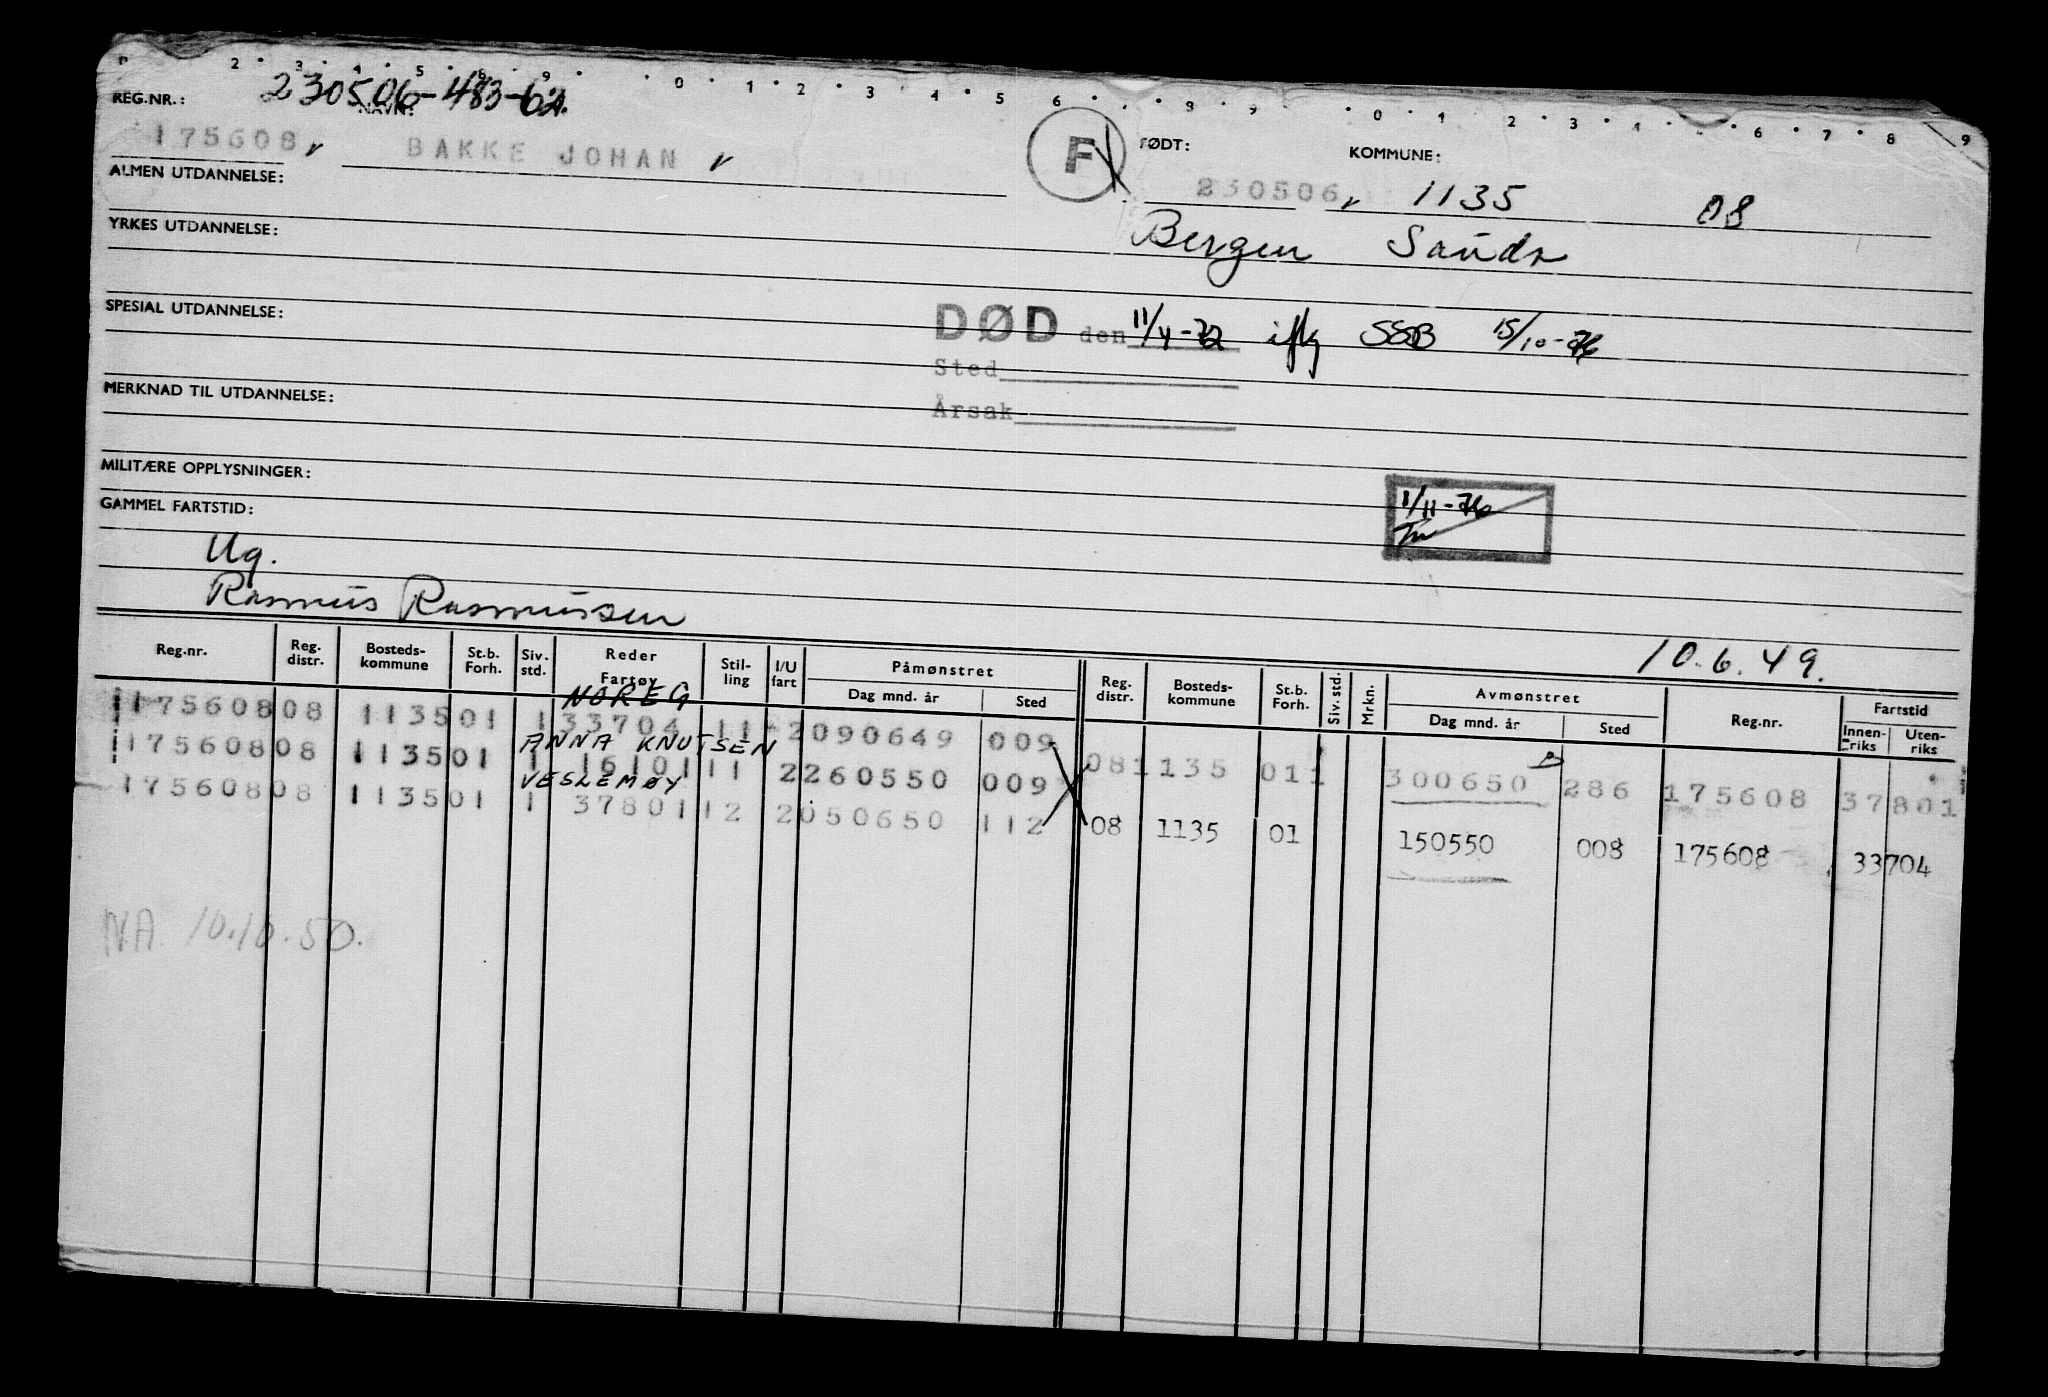 2 3 4 5 8 9 0 1 2 3 4 5 6 8 9 0 1 2 3 4 6 7 8 9
REG.NR.: 230506-483-62. NAVN:
175608 BAKKE JOHAN F FØDT: 230506 KOMMUNE: 1135 08
ALMEN UTDANNELSE:
Bergen Sauda
YRKES UTDANNELSE:
SPESIAL UTDANNELSE:
DØD den 11/4-72 iflg SSB 15/10-76
Sted
Årsak
MERKNAD TIL UTDANNELSE:
MILITÆRE OPPLYSNINGER:
1/11-76
GAMMEL FARTSTID:
Ug.
Rasmus Rasmussen
10.6.49.
Reg.nr. Reg. distr. Bosteds-kommune St.b. Forh. Siv. std. Reder Fartøy Stil-ling I/U fart Påmønstret Dag mnd. år Sted Reg. distr. Bosteds-kommune St.b. Forh. Siv. std. Mrkn. Avmønstret Dag mnd. år Sted Reg.nr. Fartstid Innen-riks Uten-riks
NOREG
175608 08 1135 01 1 33704 11 2 090649 009
ANNA KNUTSEN
175608 08 1135 01 1 16101 11 2 260550 009 08 1135 01 1 300650 286 175608 37801
VESLEMØY
175608 08 1135 01 1 37801 12 2 050650 112 08 1135 01 150550 008 175608 33704
N.A. 10.10.50.